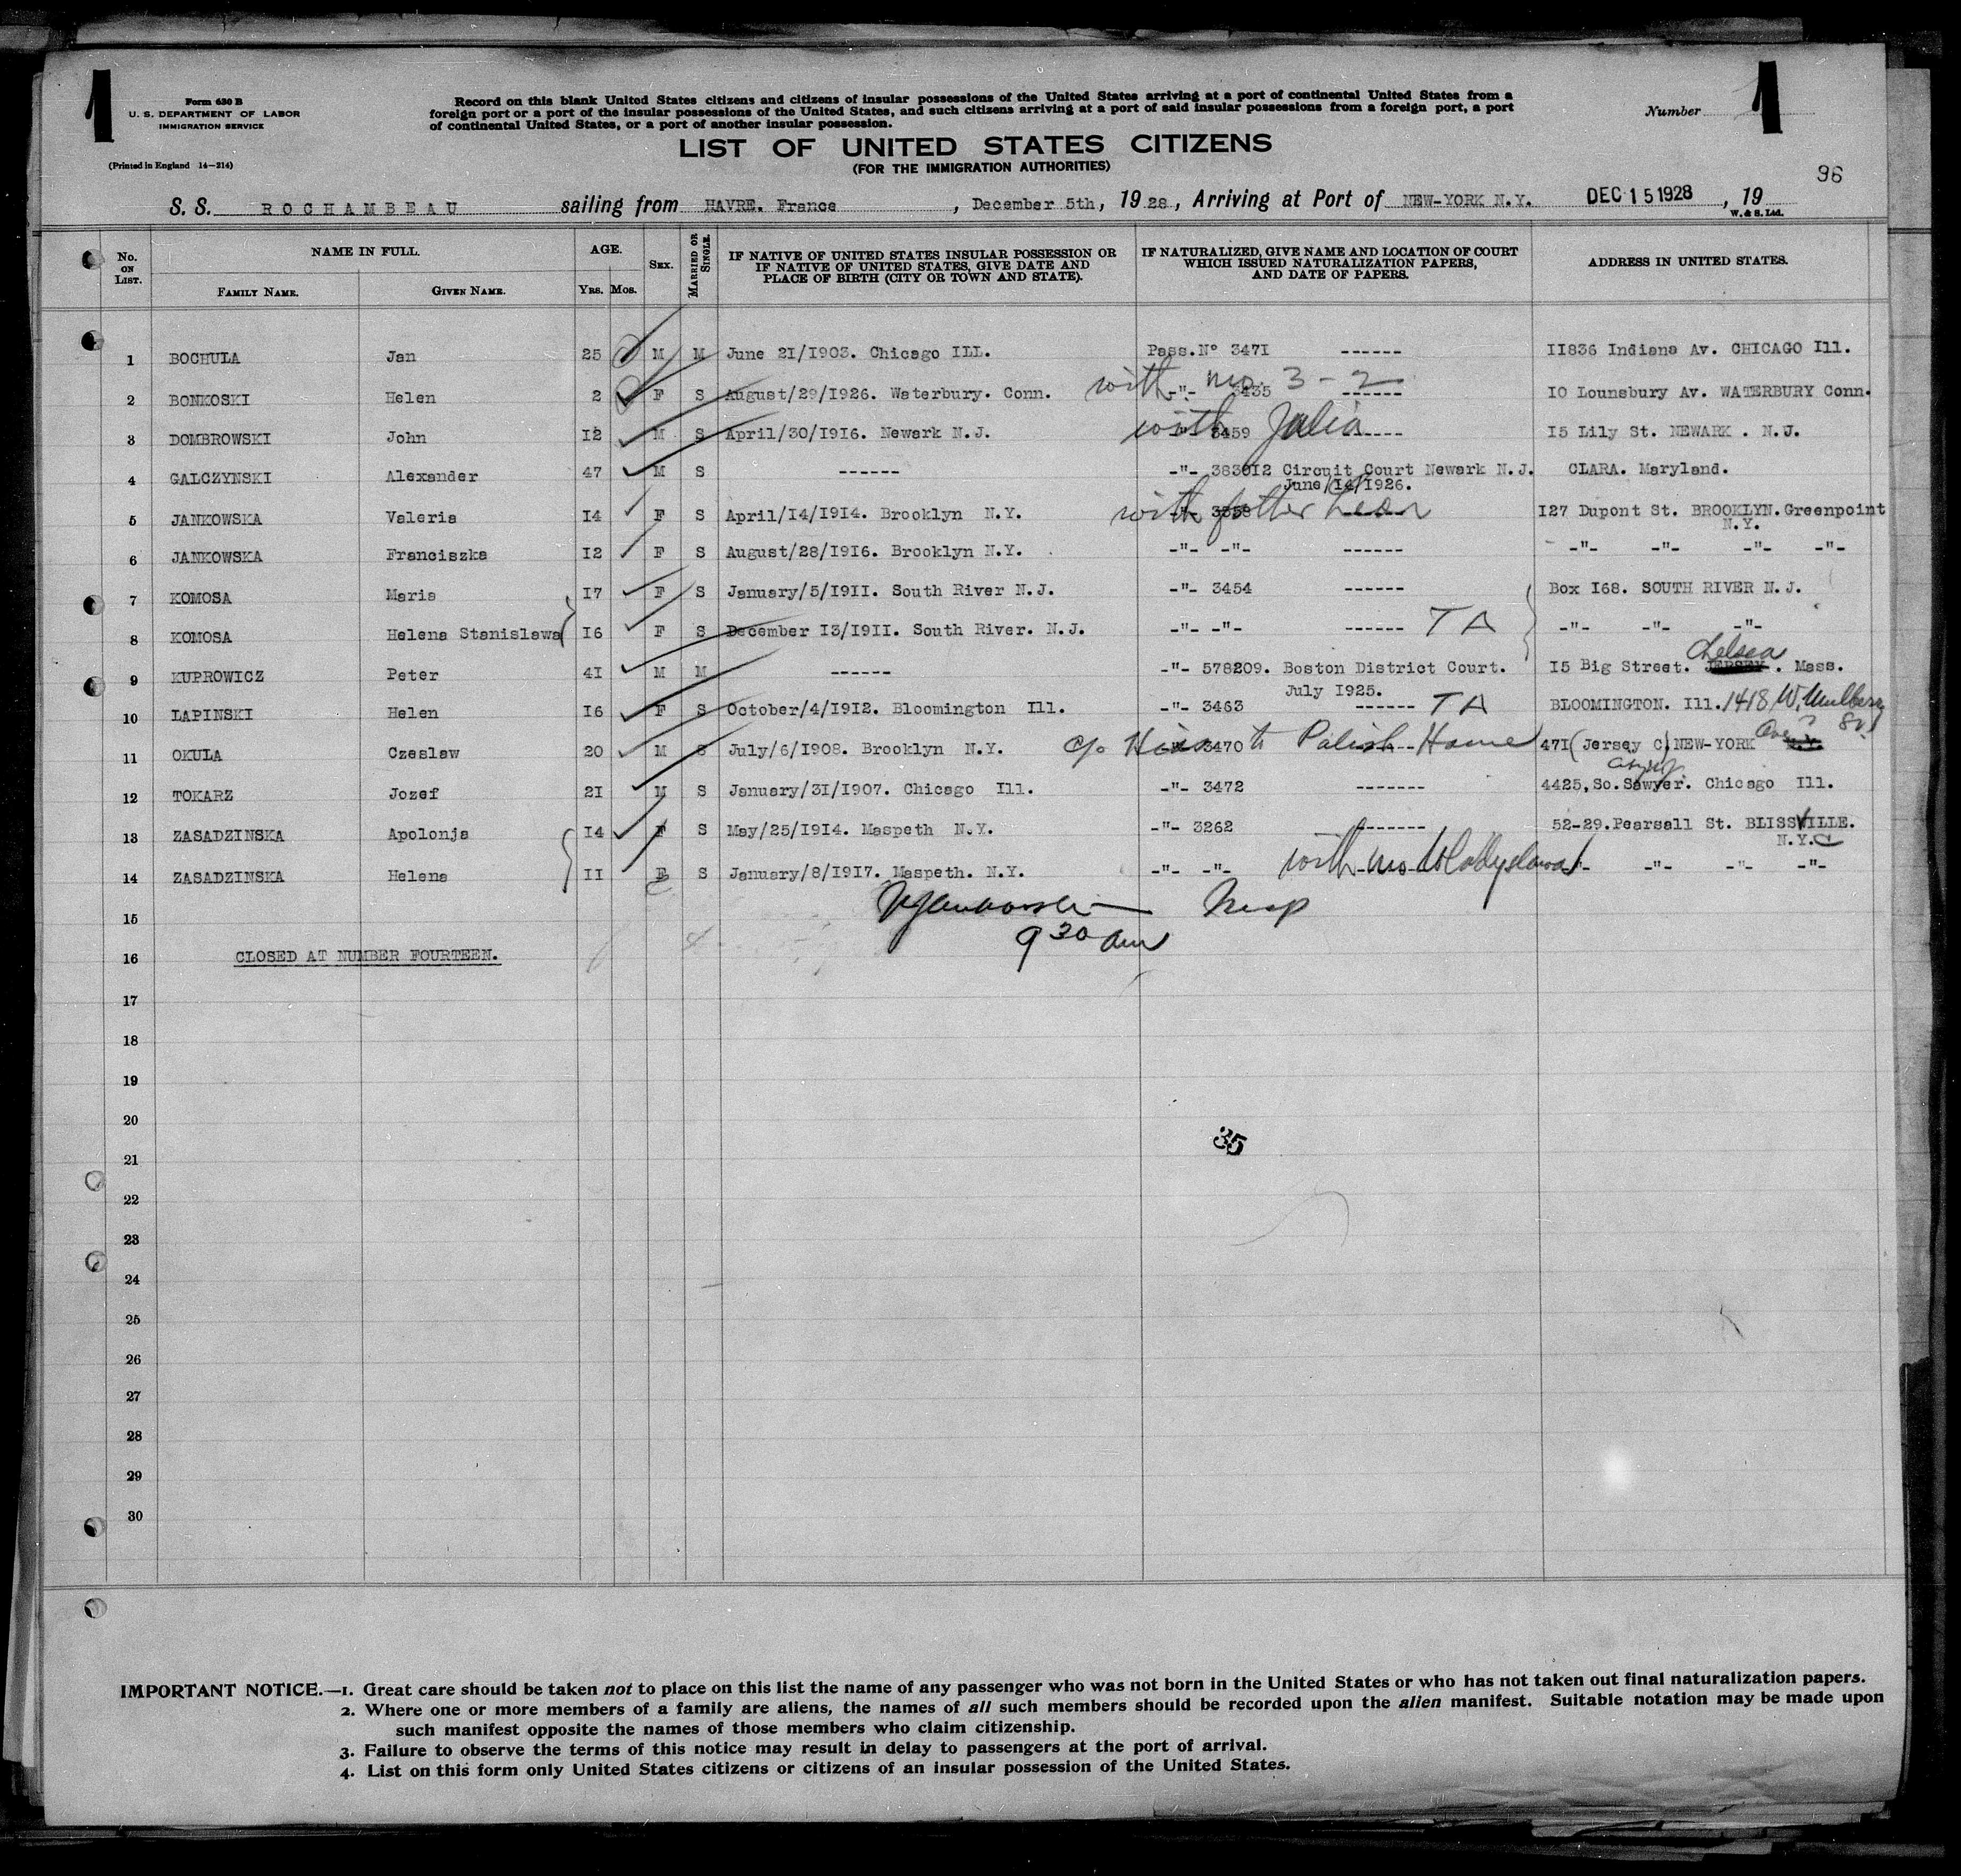 1
Form 630 B
U. S. DEPARTMENT OF LABOR
IMMIGRATION SERVICE
(Printed in England 14—214)
Record on this blank United States citizens and citizens of insular possessions of the United States arriving at a port of continental United States from a
foreign port or a port of the insular possessions of the United States, and such citizens arriving at a port of said insular possessions from a foreign port, a port
of continental United States, or a port of another insular possession.
Number 1
LIST OF UNITED STATES CITIZENS
(FOR THE IMMIGRATION AUTHORITIES)
96
S. S. ROCHAMBEAU sailing from HAVRE. France, December 5th, 1928, Arriving at Port of NEW-YORK N.Y. DEC 15 1928, 19
W. & S. Ltd.
No. ON LIST. NAME IN FULL. AGE. SEX. MARRIED OR SINGLE. IF NATIVE OF UNITED STATES INSULAR POSSESSION OR IF NATIVE OF UNITED STATES, GIVE DATE AND PLACE OF BIRTH (CITY OR TOWN AND STATE). IF NATURALIZED, GIVE NAME AND LOCATION OF COURT WHICH ISSUED NATURALIZATION PAPERS, AND DATE OF PAPERS. ADDRESS IN UNITED STATES.
FAMILY NAME. GIVEN NAME. YRS. MOS.
1 BOCHULA Jan 25 M M June 2I/I903. Chicago ILL. Pass.N° 347I ------ II836 Indiana Av. CHICAGO Ill.
2 BONKOSKI Helen 2 F S August/29/I926. Waterbury. Conn. -"- 3435 ------ with mo. 3-2 IO Lounsbury Av. WATERBURY Conn.
3 DOMBROWSKI John I2 M S April/30/I9I6. Newark N.J. 3459 ---- with Julia I5 Lily St. NEWARK . N.J.
4 GALCZYNSKI Alexander 47 M S ------ -"- 3830I2 Circuit Court Newark N.J. CLARA. Maryland.
June/I4/I926.
5 JANKOWSKA Valeria I4 F S April/I4/I9I4. Brooklyn N.Y. with father Leon I27 Dupont St. BROOKLYN.Greenpoint
N.Y.
6 JANKOWSKA Franciszka I2 F S August/28/I9I6. Brooklyn N.Y. -"- -"- ------ -"- -"- -"- -"-
7 KOMOSA Maria I7 F S January/5/I9II. South River N.J. -"- 3454 ------ Box I68. SOUTH RIVER N.J.
8 KOMOSA Helena Stanislawa I6 F S December I3/I9II. South River. N.J. -"- -"- ------ TA -"- -"- -"-
Chelsea
9 KUPROWICZ Peter 4I M M ------ -"- 578209. Boston District Court. I5 Big Street. JERSEY . Mass.
July I925.
10 LAPINSKI Helen I6 F S October/4/I9I2. Bloomington Ill. -"- 3463 ------ TA BLOOMINGTON. Ill. 1418 W. Mulberry
11 OKULA Czeslaw 20 M S July/6/I908. Brooklyn N.Y. 3470 Polish Home 47I(Jersey C) NEW-YORK N.Y.
12 TOKARZ Jozef 2I M S January/3I/I907. Chicago Ill. -"- 3472 ------- 4425,So.Sawyer. Chicago Ill.
13 ZASADZINSKA Apolonja I4 F S May/25/I9I4. Maspeth N.Y. -"- 3262 ------- 52-29.Pearsall St. BLISSVILLE.
N.Y.C
14 ZASADZINSKA Helena II F S January/8/I9I7. Maspeth. N.Y. -"- -"- with mo Wladyslawa -"- -"- -"- -"-
15 Insp
9 30 am
16 CLOSED AT NUMBER FOURTEEN.
17
18
19
20
35
21
22
23
24
25
26
27
28
29
30
IMPORTANT NOTICE.—1. Great care should be taken not to place on this list the name of any passenger who was not born in the United States or who has not taken out final naturalization papers.
2. Where one or more members of a family are aliens, the names of all such members should be recorded upon the alien manifest. Suitable notation may be made upon
such manifest opposite the names of those members who claim citizenship.
3. Failure to observe the terms of this notice may result in delay to passengers at the port of arrival.
4. List on this form only United States citizens or citizens of an insular possession of the United States.